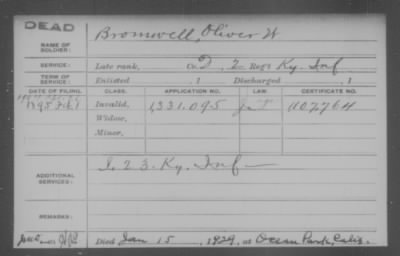 DEAD
NAME OF SOLDIER: Bromwell, Oliver W
SERVICE: Late rank, Co. D, 2 Reg't Ky. Inf
TERM OF SERVICE: Enlisted , 1 Discharged , 1
DATE OF FILING. CLASS. APPLICATION NO. LAW. CERTIFICATE NO.
1895 Invalid, 1,331.095 1107764
Widow,
Minor,
ADDITIONAL SERVICES: I. 23. Ky. Inf
REMARKS:
Died Jan 15, 1929, at Ocean Park, Calif.